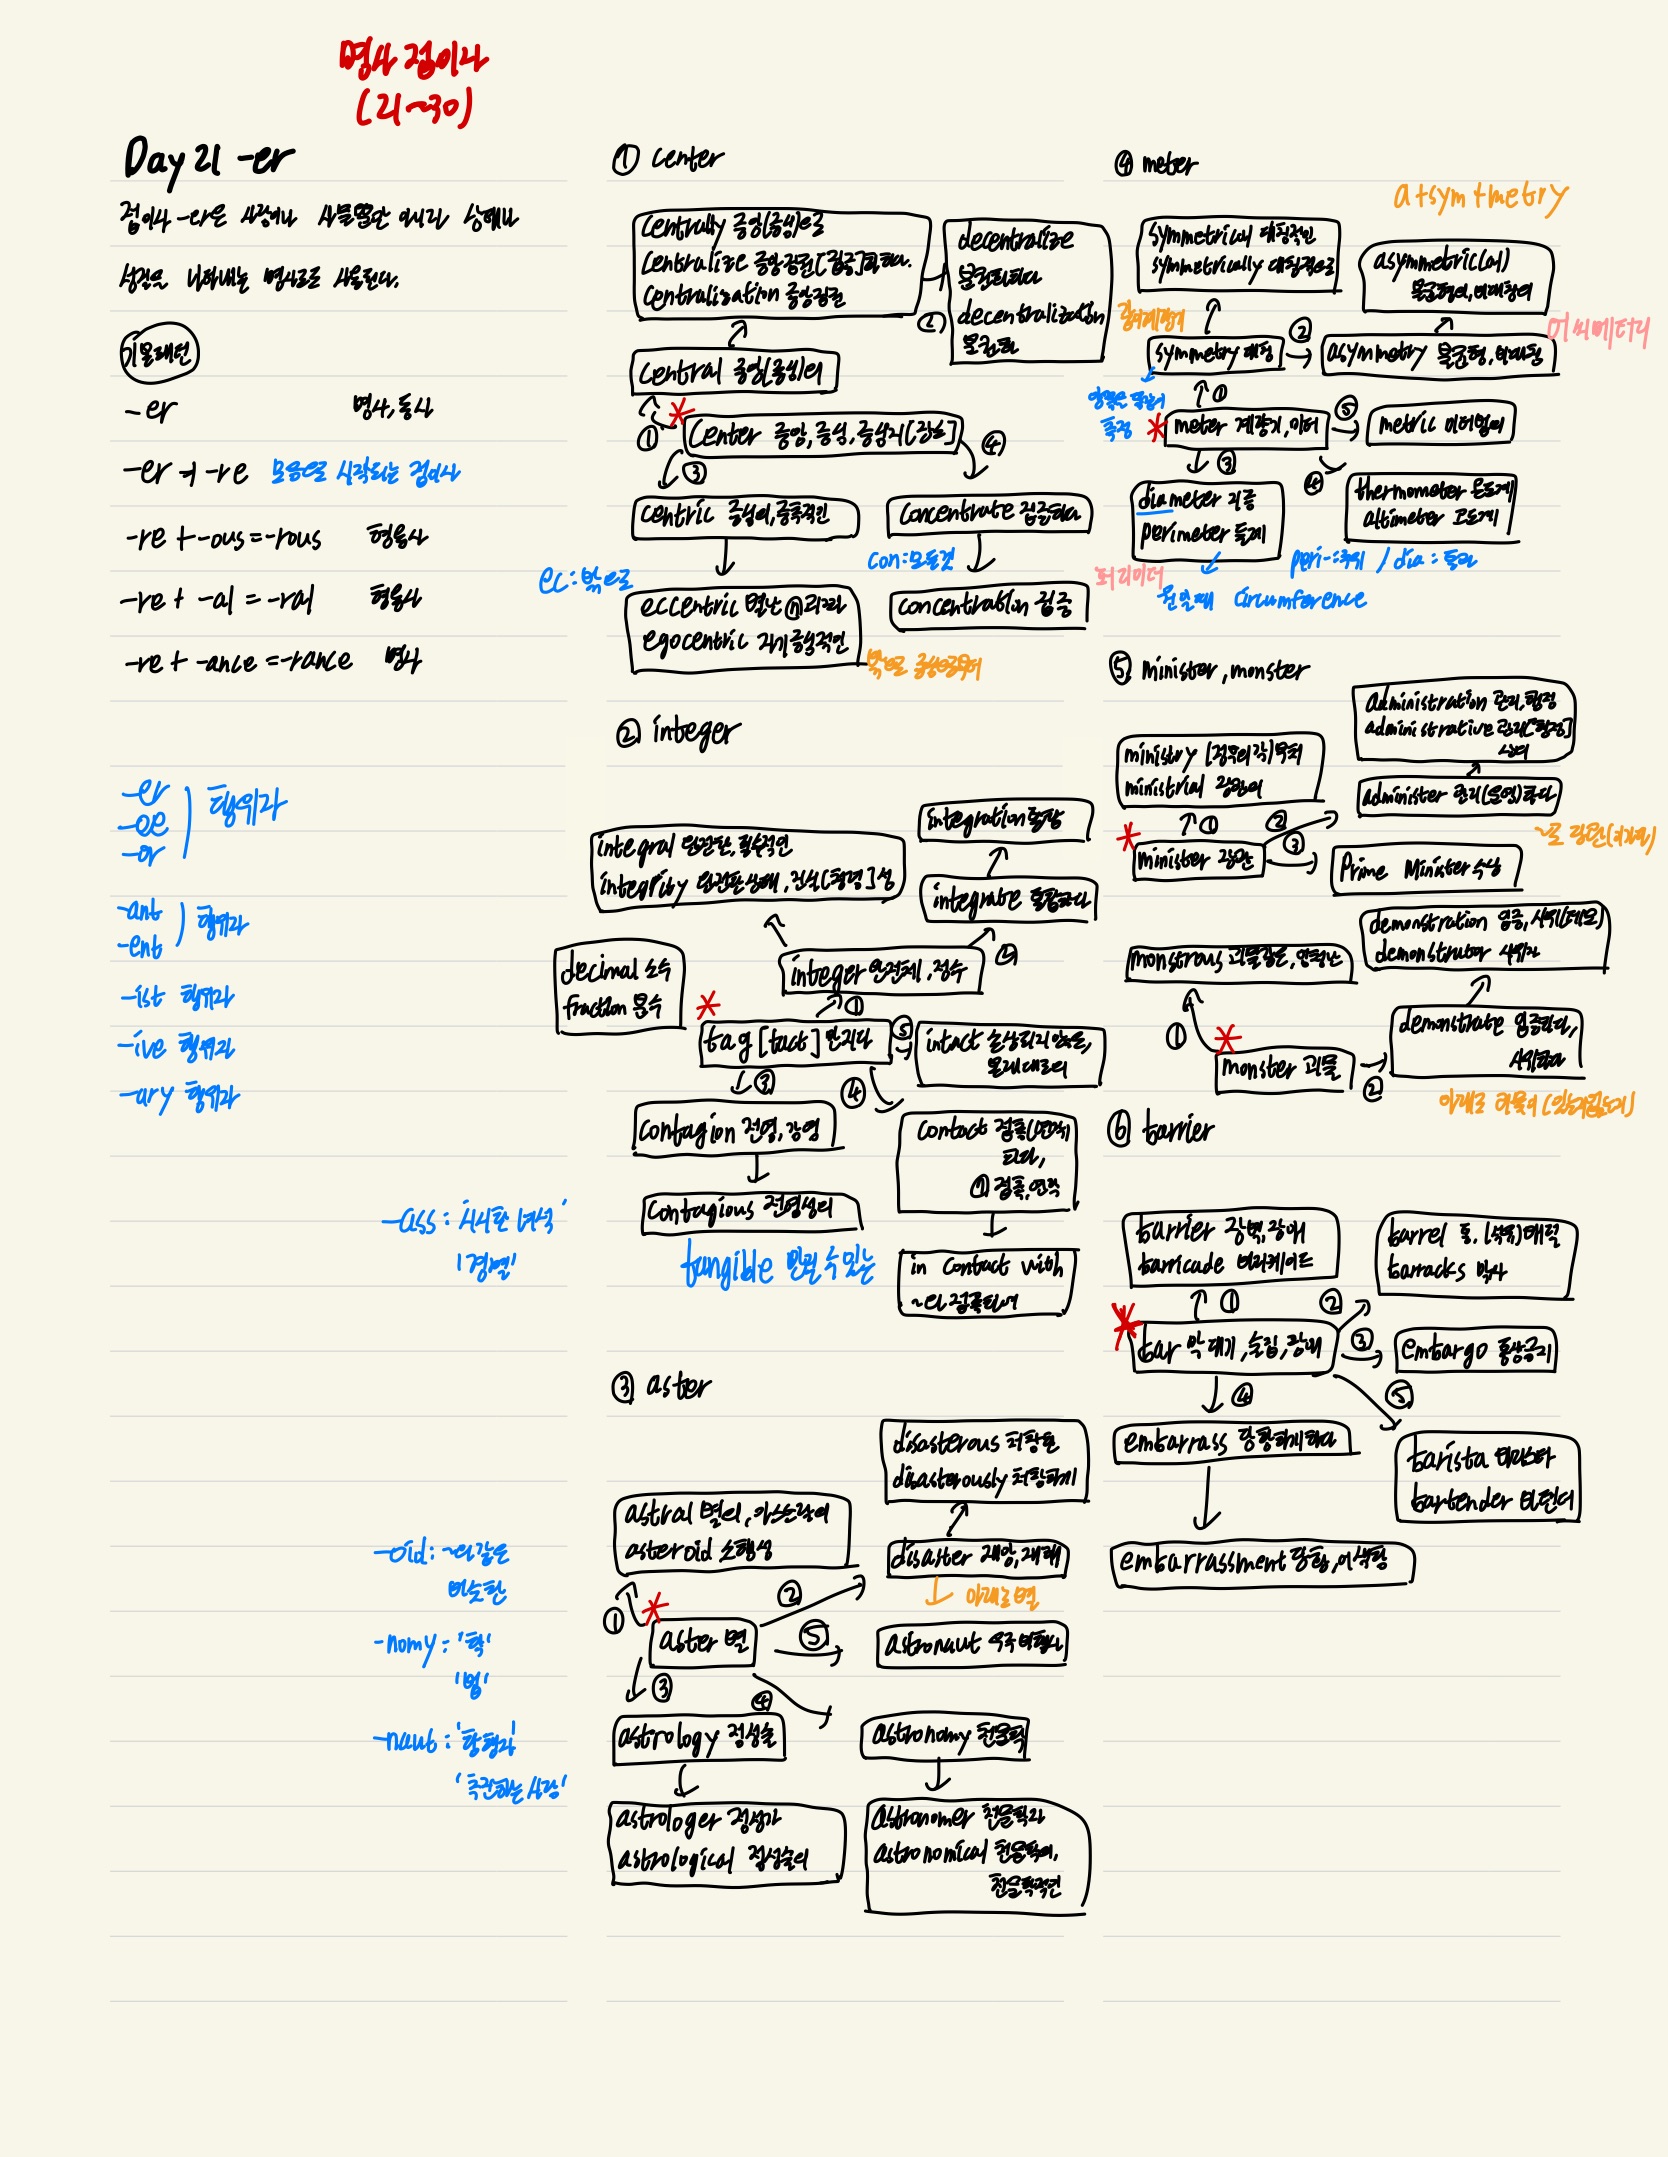 명사 접미사
(21~30)
Day 21 -er
접미사 -er은 사람이나 사물뿐만 아니라 상태나
성질을 나타내는 명사로도 사용된다.
-er 명사, 동사
-er → -re 모음으로 시작되는 접미사
-re + -ous = -rous 형용사
-re + -al = -ral 형용사
-re + -ance = -rance 명사
-er
-ee
-or
행위자
-ant
-ent
행위자
-ist 행위자
-ive 행위자
-ary 행위자
-ass : 시시한 녀석'
-oid : ~와 같은
비슷한
-nomy : '학'
'법'
-naut : '항행자'
① center
centrally 중앙(중심)으로
centralize 중앙집권[집중]화하다.
centralization 중앙집권
②
decentralize
분권화하다
decentralization
분권화
central 중앙(중심)의
①
center 중앙, 중심, 중심지[장소]
③
④
centric 중심의, 중추적인
concentrate 집중하다
ec : 밖으로
con : 모든것
eccentric 별난 ⓝ괴짜
egocentric 자기중심적인
concentration 집중
밖으로 중심으로부터
② integer
integral 완전한, 필수적인
integrity 완전한 상태, 진실[청렴]성
integration 통합
integrate 통합하다
decimal 소수
fraction 분수
integer 완전체, 정수
②
①
tag [tact] 만지다
⑤
intact 손상되지 않은,
본래대로의
③
④
contagion 전염, 감염
contact 접촉(연락)
하다,
ⓝ 접촉, 연락
contagious 전염성의
tangible 만질 수 있는
in contact with
~와 접촉하여
③ aster
disasterous 처참한
disasterously 처참하게
astral 별의, 아스트랄의
asteroid 소행성
disaster 재앙, 재해
아래로 별
①
②
aster 별
⑤
astronaut 우주비행사
③
④
astrology 점성술
astronomy 천문학
astrologer 점성가
astrological 점성술의
astronomer 천문학자
astronomical 천문학의,
천문학적인
④ meter
a+sym+metry
symmetrical 대칭적인
symmetrically 대칭적으로
asymmetric(al)
불균형의, 비대칭의
어씨메터리
symmetry 대칭
②
asymmetry 불균형, 비대칭
양쪽은 똑같이
측정
①
meter 계량기, 미터
⑤
metric 미터법의
③
④
diameter 지름
perimeter 둘레
thermometer 온도계
altimeter 고도계
peri- : 주위 / dia : 통과
원일때 circumference
⑤ minister, monster
administration 관리, 행정
administrative 관리[행정]
상의
ministry [정부의 각] 부처
ministrial 장관의
administer 관리(운영)하다
①
②
minister 장관
③
Prime Minister 수상
demonstration 입증, 시위(데모)
demonstrator 시위자
monstrous 괴물같은, 엄청난
demonstrate 입증하다,
시위하다
①
monster 괴물
②
⑥ barrier
barrier 장벽, 장애
barricade 바리케이드
barrel 통, (석유) 배럴
barracks 막사
①
②
bar 막대기, 술집, 장애
③
embargo 통상금지
④
⑤
embarrass 당황하게하다
barista 바리스타
bartender 바텐더
embarrassment 당황, 어색함